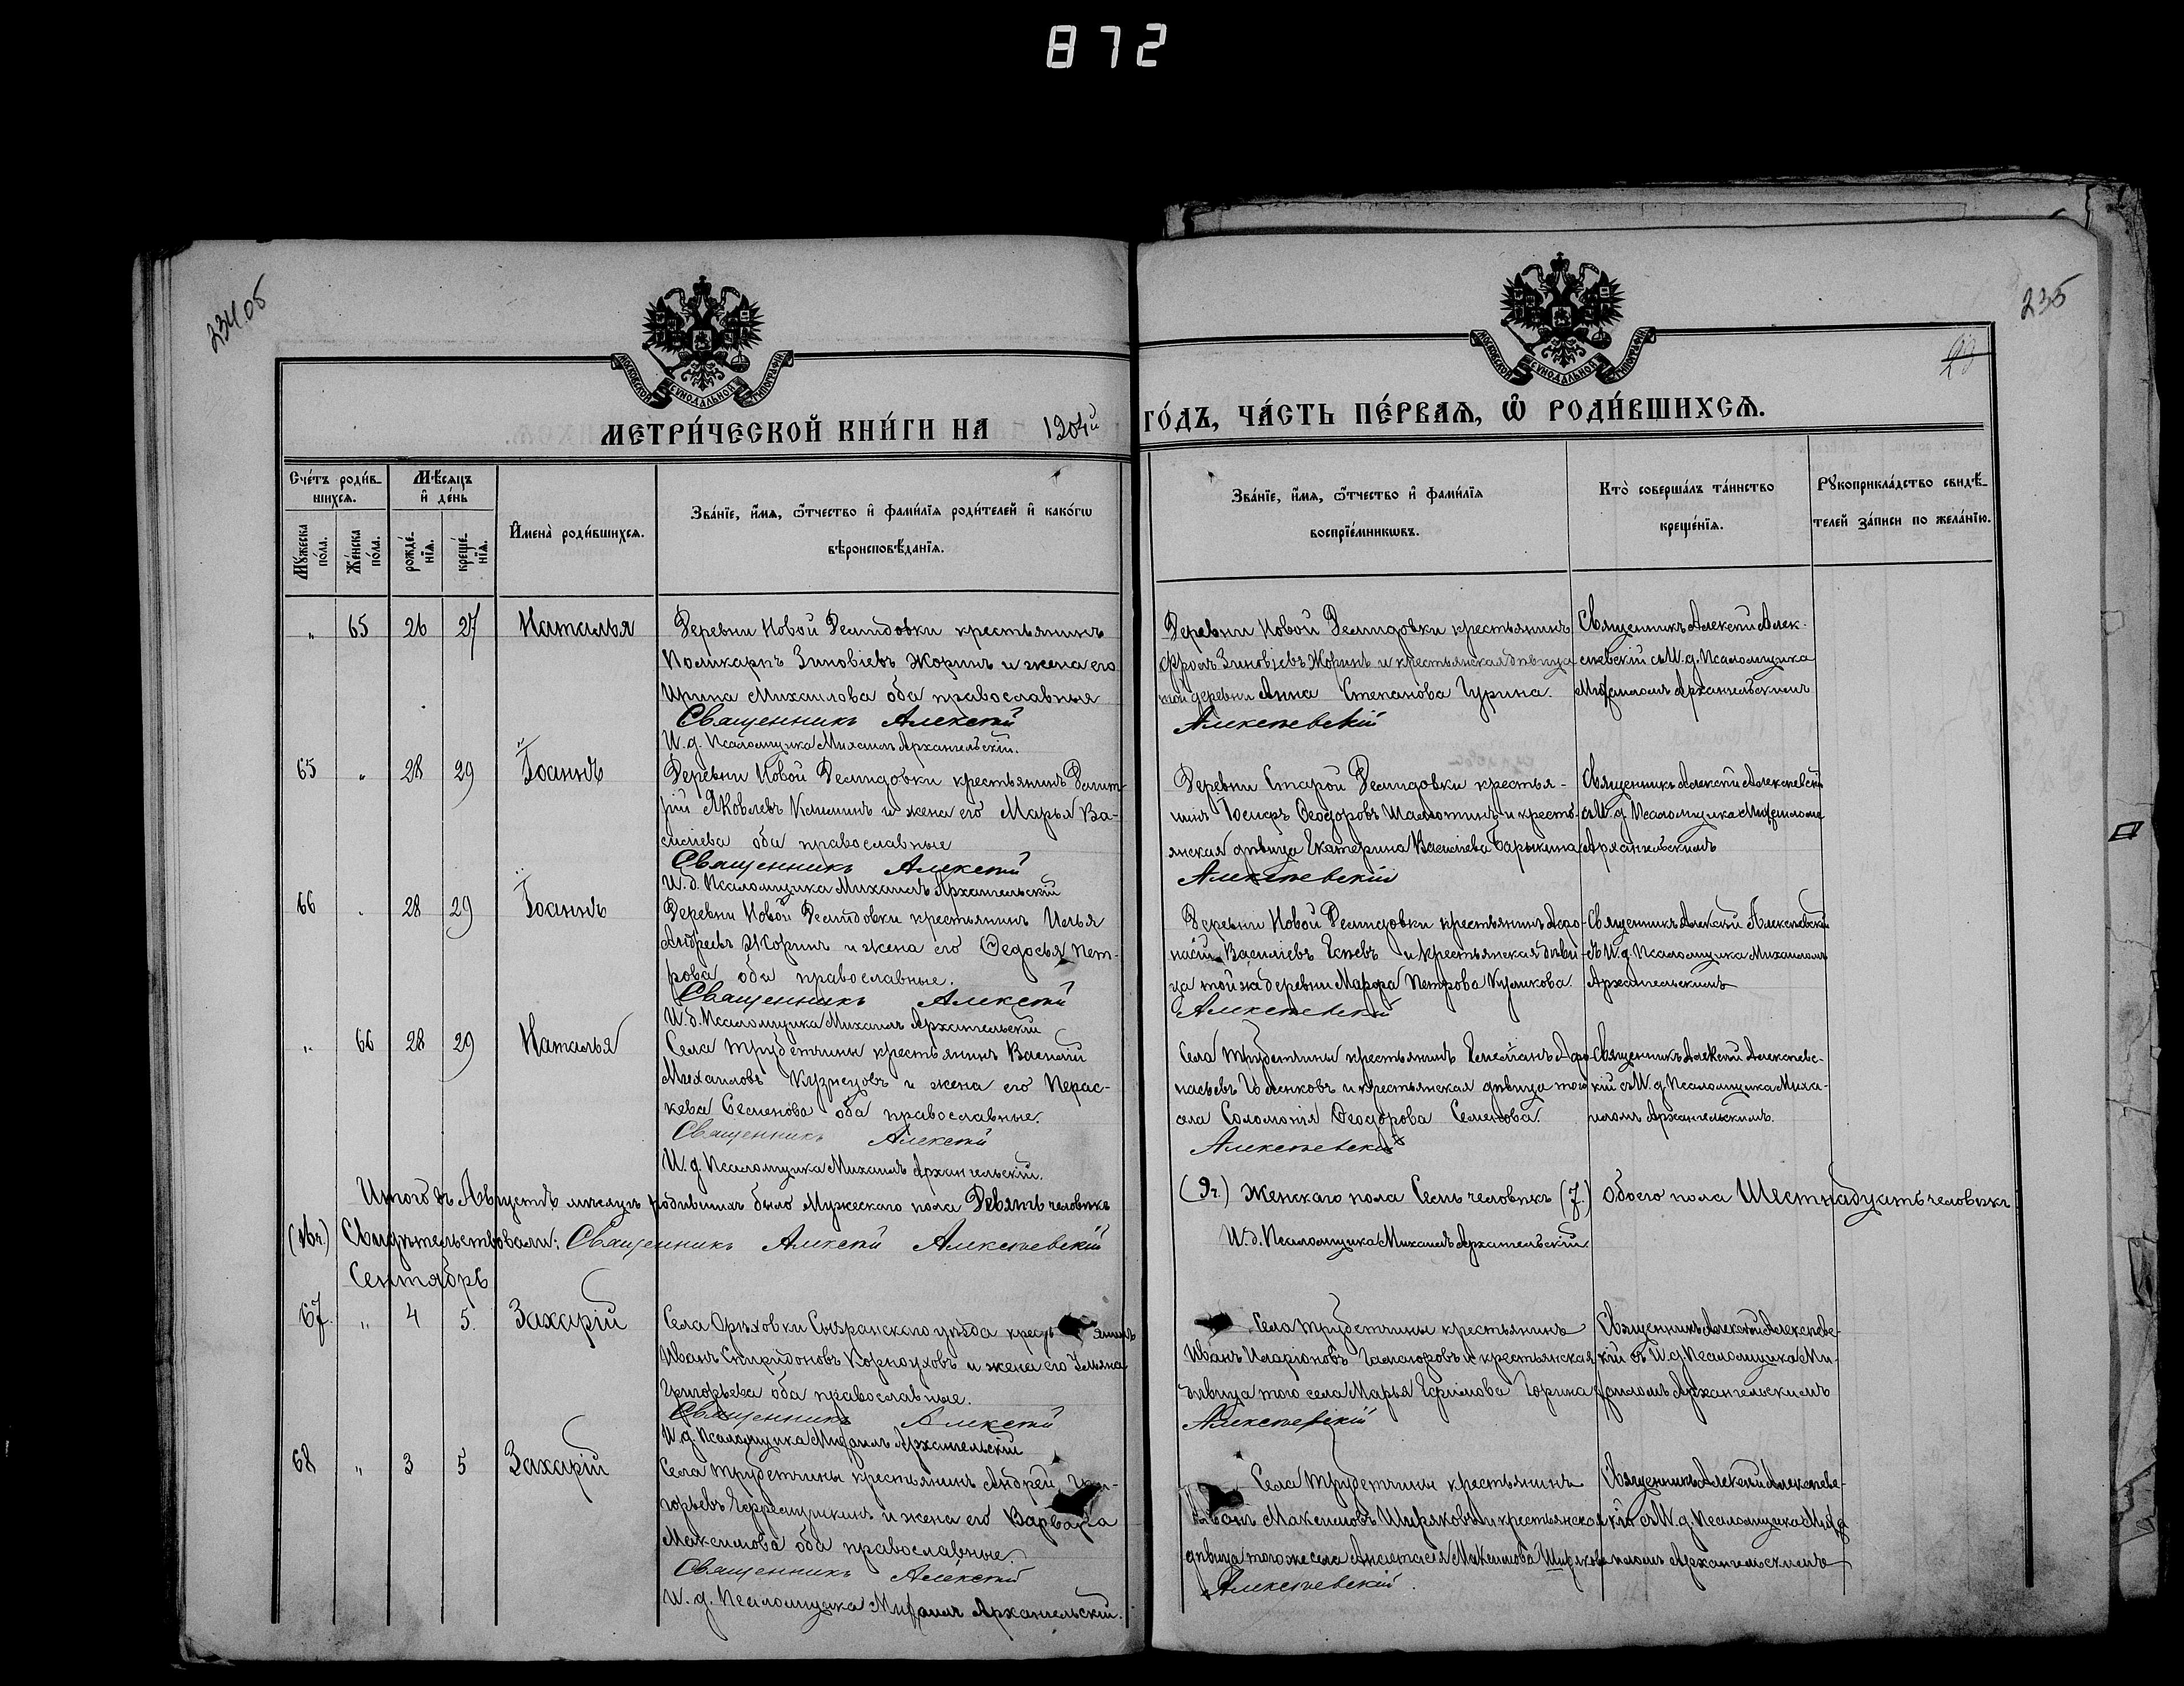 872
234об
235
МОСКОВСКОЙ СѴНОДАЛЬНОЙ ТИПОГРАФІИ
МОСКОВСКОЙ СѴНОДАЛЬНОЙ ТИПОГРАФІИ
МЕТРИ́ЧЕСКОЙ КНИ́ГИ НА 1904й ГО́ДЪ, ЧА́СТЬ ПЕ́РВАѦ, Ѡ҆ РОДИ́ВШИХСѦ.
Сче́тъ роди́в-
шихсѧ.
Мѣ́сѧцъ
и҆ де́нь
Мꙋ́жеска
по́ла.
Же́нска
по́ла.
рожде́-
нїѧ.
креще́-
нїѧ.
И҆мена̀ роди́вшихсѧ.
Зва́нїе, и҆́мѧ, ѻ҆́тчество и҆ фами́лїѧ роди́телей и҆ како́гѡ
вѣроисповѣ́данїѧ.
Зва́нїе, и҆́мѧ, ѻ҆́тчество и҆ фами́лїѧ
воспрїе́мникѡвъ.
Кто̀ соверша́лъ та́инство
креще́нїѧ.
Рꙋкоприкла́дство свидѣ́-
телей за́писи по жела́нїю.
" 65 26 27 Наталья
Деревни Новой Демидовки крестьянинъ
Поликарпъ Зиновіевъ Жоринъ и жена его
Ирина Михаилова оба православныя
Священникъ Алексѣй
И. д. Псаломщика Михаилъ Архангельскій.
Деревни Новой Демидовки крестьянинъ
Фролъ Зиновіевъ Жоринъ и крестьянская дѣвица
той деревни Анна Степанова Гурина.
Алексѣевскій
Священникъ Алексѣй Алек-
сѣевскій съ И. д. Псаломщика
Михаиломъ Архангельскимъ
65 " 28 29 Іоаннъ
Деревни Новой Демидовки крестьянинъ Димит-
рій Яковлевъ Климинъ и жена его Марья Ва-
силіева оба православные
Священникъ Алексѣй
И. д. Псаломщика Михаилъ Архангельскій
Деревни Старой Демидовки крестья-
нинъ Іосифъ Ѳеодоровъ и кресть-
янская дѣвица Екатерина Василіева Барыкина
Алексѣевскій
Священникъ Алексѣй Алексѣевскій
съ И. д. Псаломщика Михаиломъ
Архангельскимъ
66 " 28 29 Іоаннъ
Деревни Новой Демидовки крестьянинъ Илья
Андреевъ Жоринъ и жена его Ѳедосья Пет-
рова оба православные.
Священникъ Алексѣй
И. д. Псаломщика Михаилъ Архангельскій
Деревни Новой Демидовки крестьянинъ Афо-
насій Василіевъ и крестьянская дѣви-
ца той же деревни Марфа Петрова Куликова.
Алексѣевскій
Священникъ Алексѣй Алексѣевскій
съ И. д. Псаломщика Михаиломъ
Архангельскимъ
" 66 28 29 Наталья
Села Трубетчины крестьянинъ Василій
Михаиловъ Кузнецовъ и жена его Перас-
кева Семенова оба православные.
Священникъ Алексѣй
И. д. Псаломщика Михаилъ Архангельскій.
Села Трубетчины крестьянинъ Емельянъ Афо-
насьевъ Голенковъ и крестьянская дѣвица того
села Соломонія Ѳеодорова Семенова.
Алексѣевскій
Священникъ Алексѣй Алексѣевс-
кій съ И. д. Псаломщика Миха-
иломъ Архангельскимъ.
Итого въ Августѣ мѣсяцѣ родившихъ было Мужескаго пола Девять человѣкъ
(9ч.) Женскаго пола Семь человѣкъ (7.) Обоего пола Шестнадцать человѣкъ
(16ч.) Свидѣтельствовали: Священникъ Алексѣй Алексѣевскій
И. д. Псаломщика Михаилъ Архангельскій.
Сентябрь
67. " 4 5. Захарій
Села Орѣховки Сызранскаго уѣзда крестьянинъ
Иванъ Спиридоновъ Корноуховъ и жена его Ульяна
Григорьева оба православные.
Священникъ Алексѣй
И. д. Псаломщика Михаилъ Архангельскій
Села Трубетчины крестьянинъ
Иванъ Иларіоновъ и крестьянская
дѣвица того села Марья Ефимова Горина
Алексѣевскій
Священникъ Алексѣй Алексѣевс-
кій съ И. д. Псаломщика Ми-
хаиломъ Архангельскимъ
68 " 3 5 Захарій
Села Трубетчины крестьянинъ Андрей Гри-
горьевъ и жена его Варвара
Максимова оба православные.
Священникъ Алексѣй
И. д. Псаломщика Михаилъ Архангельскій.
Села Трубетчины крестьянинъ
Иванъ Максимовъ Ширяковъ и крестьянская
дѣвица того же села Анастасія Максимова Ширякова
Алексѣевскій.
Священникъ Алексѣй Алексѣевс-
кій съ И. д. Псаломщика Миха
иломъ Архангельскимъ